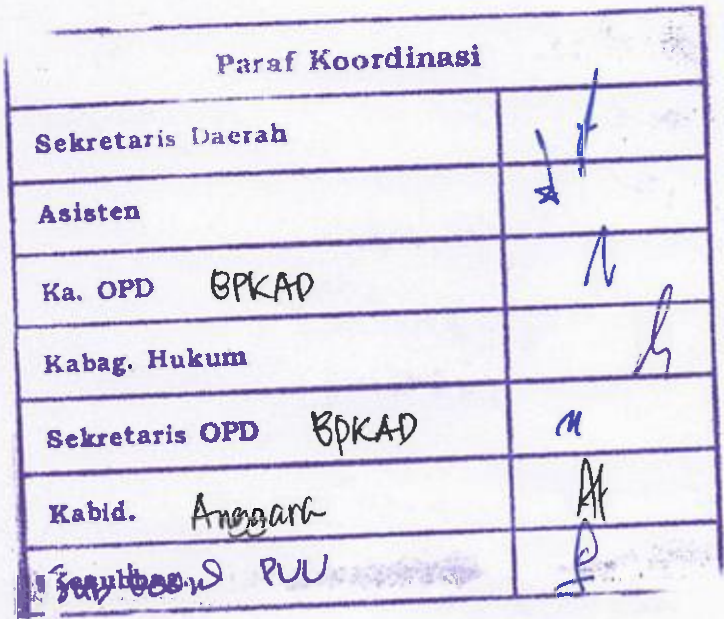 Paraf Koordinasi
Sekretaris Daerah
Asisten
Ka. OPD BPKAD
Kabag. Hukum
Sekretaris OPD BPKAD
Kabid. Anggara
PUU